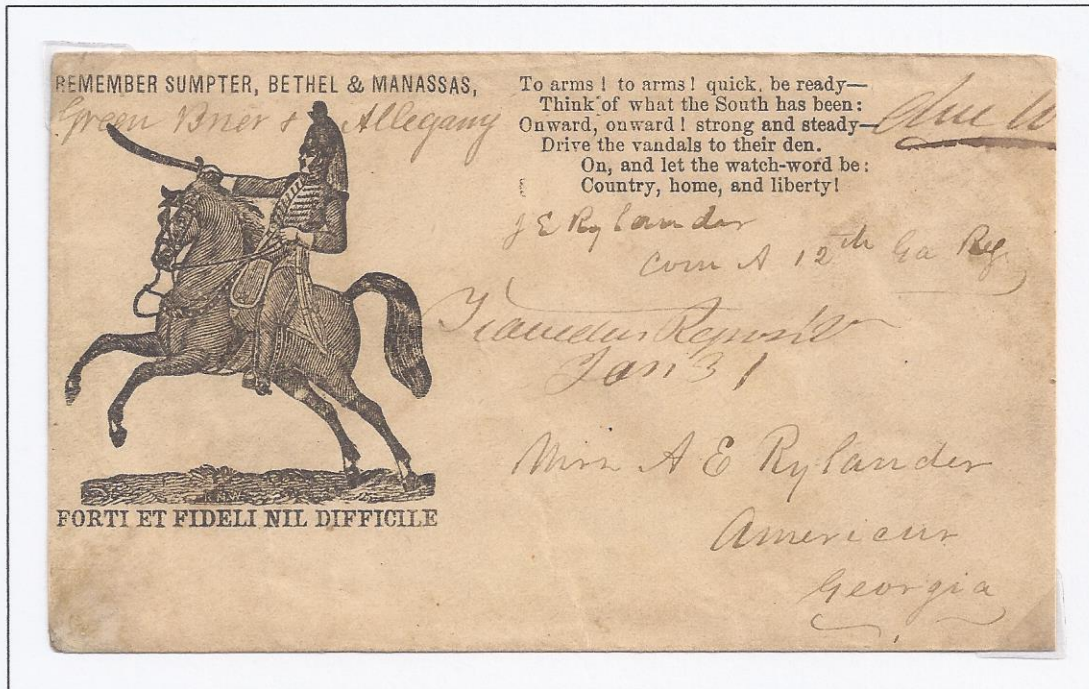 REMEMBER SUMPTER, BETHEL & MANASSAS,
Green Brier & Allegany
To arms ! to arms ! quick, be ready—
Think of what the South has been :
Onward, onward ! strong and steady—
Drive the vandals to their den.
On, and let the watch-word be :
Country, home, and liberty!
due 10
J E Rylander
Com A 12th Ga Reg
Travelers Repose Va
Jan 31
Miss A E Rylander
Americus
Georgia
FORTI ET FIDELI NIL DIFFICILE